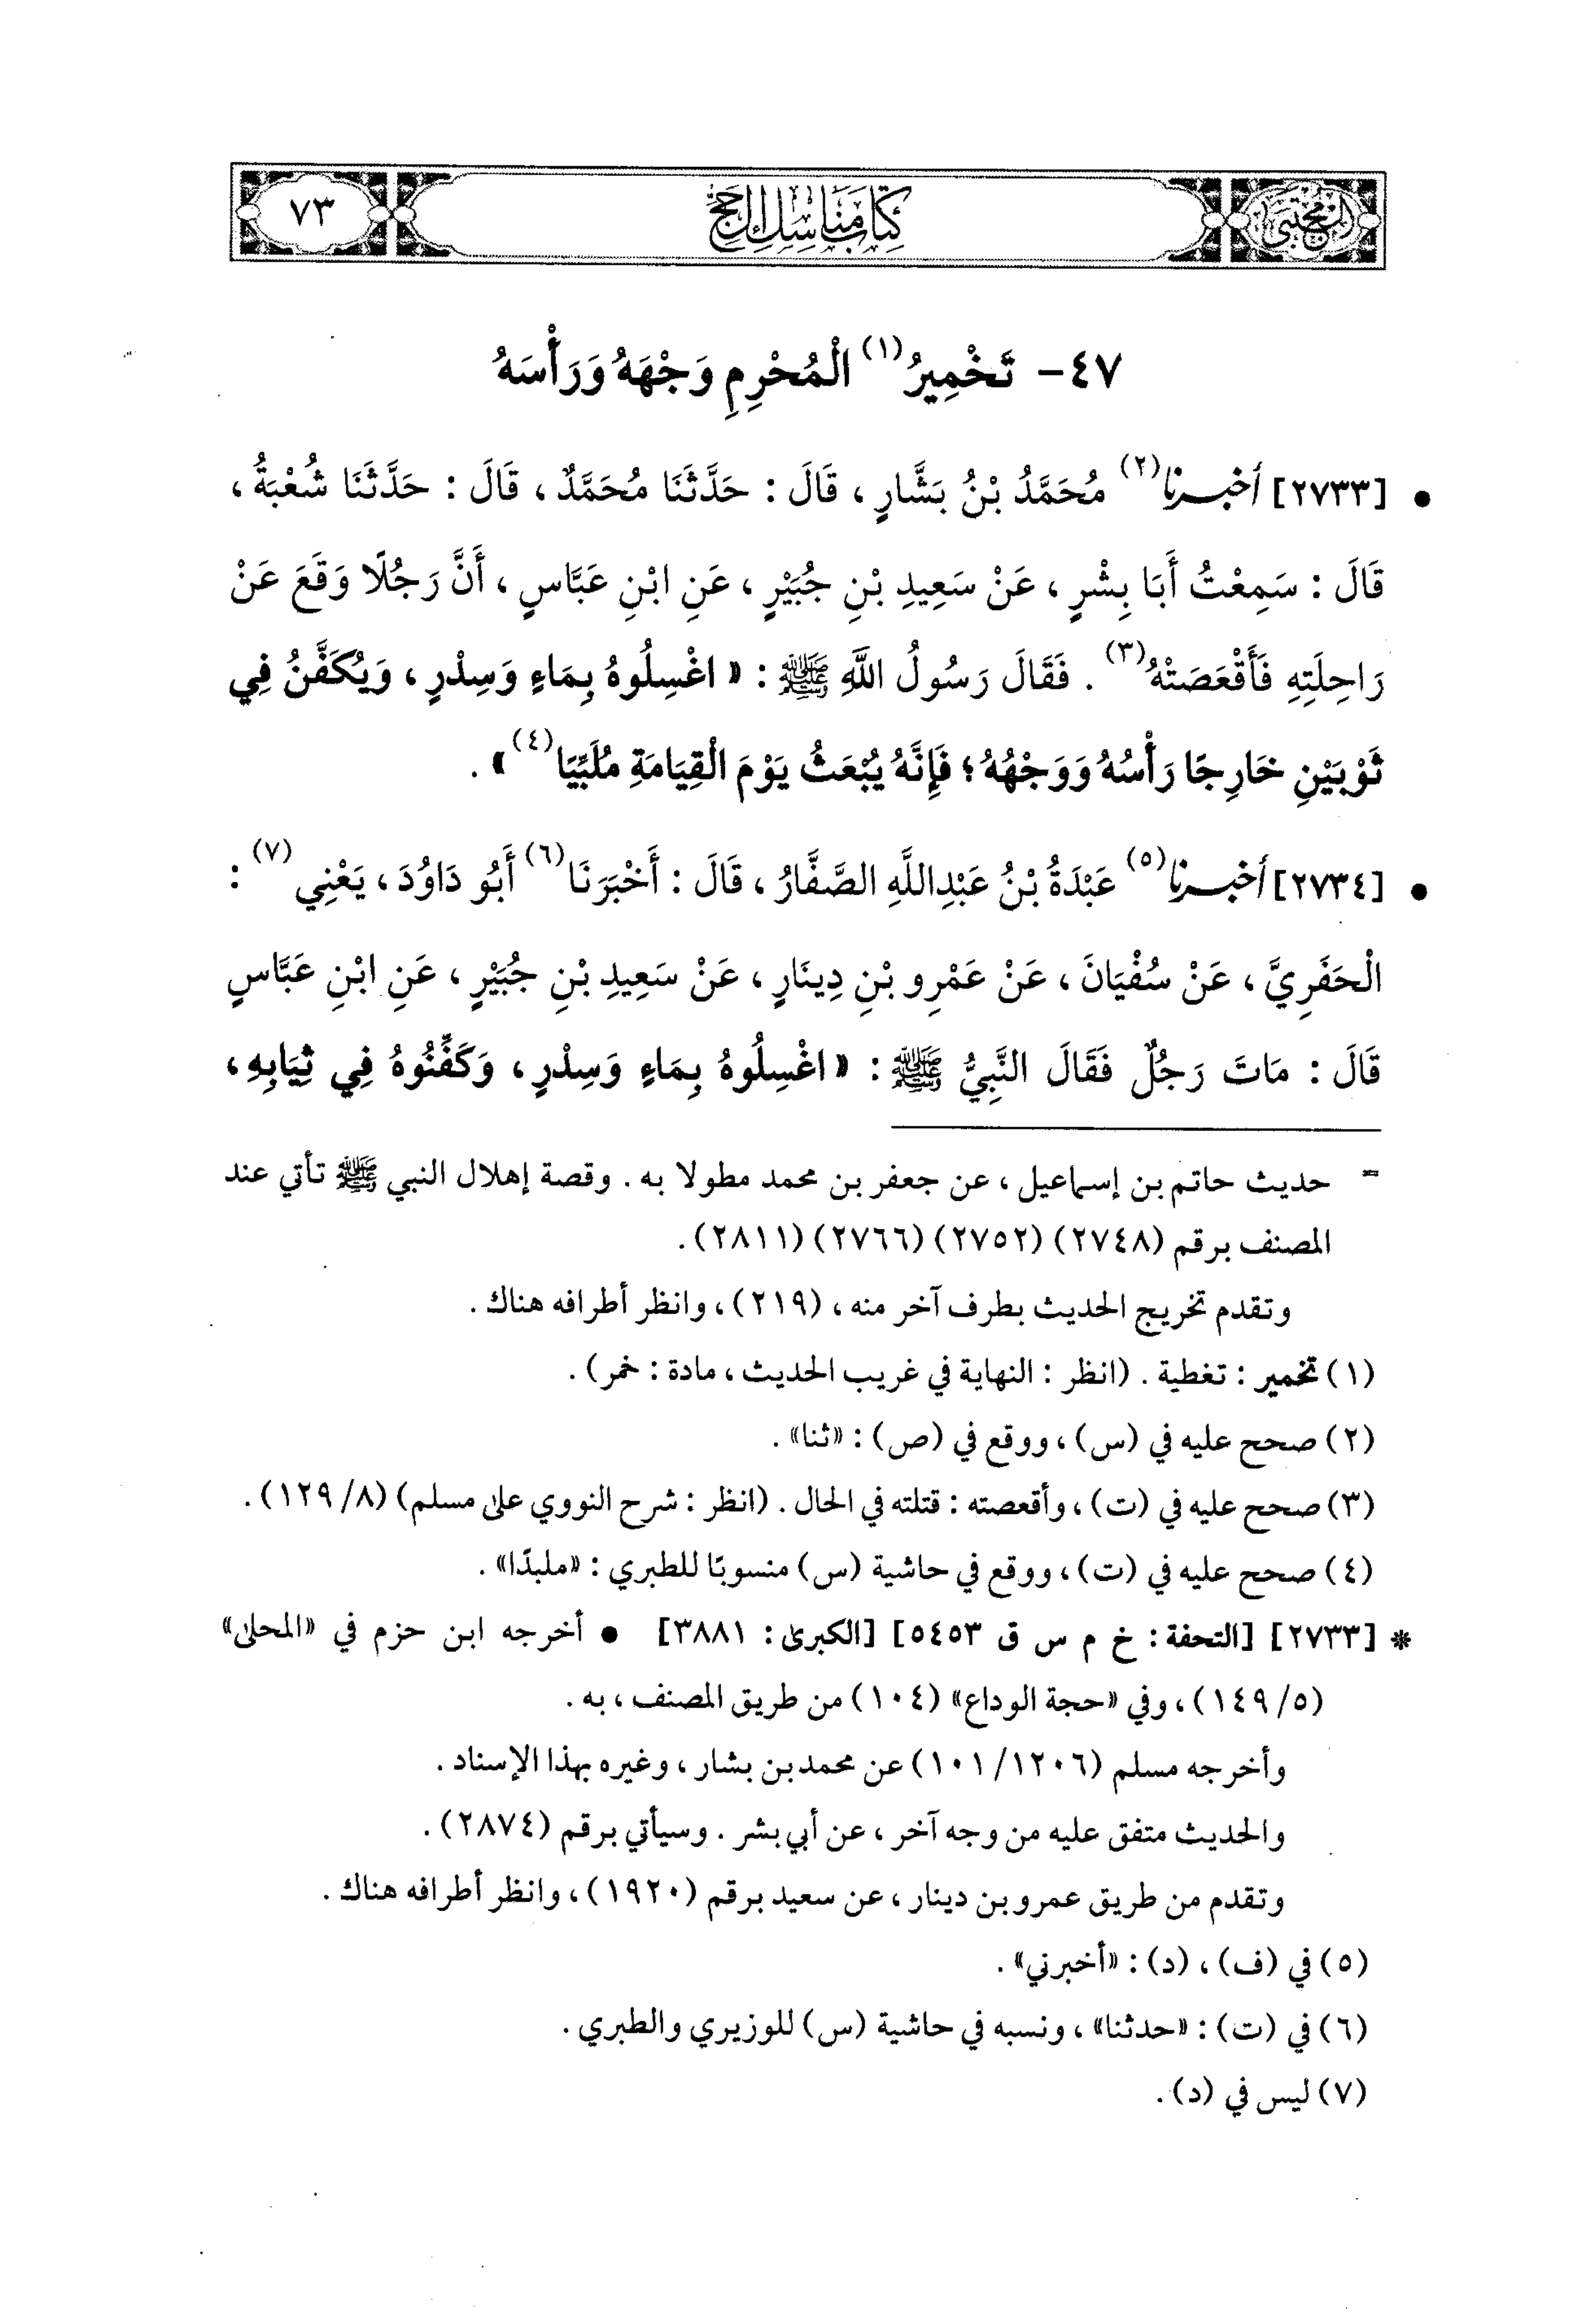 المجتبى
كتاب مناسك الحج
٧٣
٤٧- تَخْمِيرُ(١) الْمُحْرِمِ وَجْهَهُ وَرَأْسَهُ
• [٢٧٣٣] أخبرنا(٢) مُحَمَّدُ بْنُ بَشَّارٍ، قَالَ: حَدَّثَنَا مُحَمَّدٌ، قَالَ: حَدَّثَنَا شُعْبَةُ،
قَالَ: سَمِعْتُ أَبَا بِشْرٍ، عَنْ سَعِيدِ بْنِ جُبَيْرٍ، عَنِ ابْنِ عَبَّاسٍ، أَنَّ رَجُلًا وَقَعَ عَنْ
رَاحِلَتِهِ فَأَقْعَصَتْهُ(٣). فَقَالَ رَسُولُ اللَّهِ ﷺ: «اغْسِلُوهُ بِمَاءٍ وَسِدْرٍ، وَيُكَفَّنُ فِي
ثَوْبَيْنِ خَارِجًا رَأْسُهُ وَوَجْهُهُ؛ فَإِنَّهُ يُبْعَثُ يَوْمَ الْقِيَامَةِ مُلَبِّيًا(٤)».
• [٢٧٣٤] أخبرنا(٥) عَبْدَةُ بْنُ عَبْدِاللَّهِ الصَّفَّارُ، قَالَ: أَخْبَرَنَا(٦) أَبُو دَاوُدَ، يَعْنِي(٧):
الْحَفَرِيَّ، عَنْ سُفْيَانَ، عَنْ عَمْرِو بْنِ دِينَارٍ، عَنْ سَعِيدِ بْنِ جُبَيْرٍ، عَنِ ابْنِ عَبَّاسٍ
قَالَ: مَاتَ رَجُلٌ فَقَالَ النَّبِيُّ ﷺ: «اغْسِلُوهُ بِمَاءٍ وَسِدْرٍ، وَكَفِّنُوهُ فِي ثِيَابِهِ،
= حديث حاتم بن إسماعيل، عن جعفر بن محمد مطولا به. وقصة إهلال النبي ﷺ تأتي عند
المصنف برقم (٢٧٤٨) (٢٧٥٢) (٢٧٦٦) (٢٨١١).
وتقدم تخريج الحديث بطرف آخر منه، (٢١٩)، وانظر أطرافه هناك.
(١) تخمير: تغطية. (انظر: النهاية في غريب الحديث، مادة: خمر).
(٢) صحح عليه في (س)، ووقع في (ص): «ثنا».
(٣) صحح عليه في (ت)، وأقعصته: قتلته في الحال. (انظر: شرح النووي على مسلم) (٨/ ١٢٩).
(٤) صحح عليه في (ت)، ووقع في حاشية (س) منسوبًا للطبري: «ملبدًا».
* [٢٧٣٣] [التحفة: خ م س ق ٥٤٥٣] [الكبرى: ٣٨٨١] • أخرجه ابن حزم في «المحلى»
(٥/ ١٤٩)، وفي «حجة الوداع» (١٠٤) من طريق المصنف، به.
وأخرجه مسلم (١٢٠٦/ ١٠١) عن محمد بن بشار، وغيره بهذا الإسناد.
والحديث متفق عليه من وجه آخر، عن أبي بشر. وسيأتي برقم (٢٨٧٤).
وتقدم من طريق عمرو بن دينار، عن سعيد برقم (١٩٢٠)، وانظر أطرافه هناك.
(٥) في (ف)، (د): «أخبرني».
(٦) في (ت): «حدثنا»، ونسبه في حاشية (س) للوزيري والطبري.
(٧) ليس في (د).